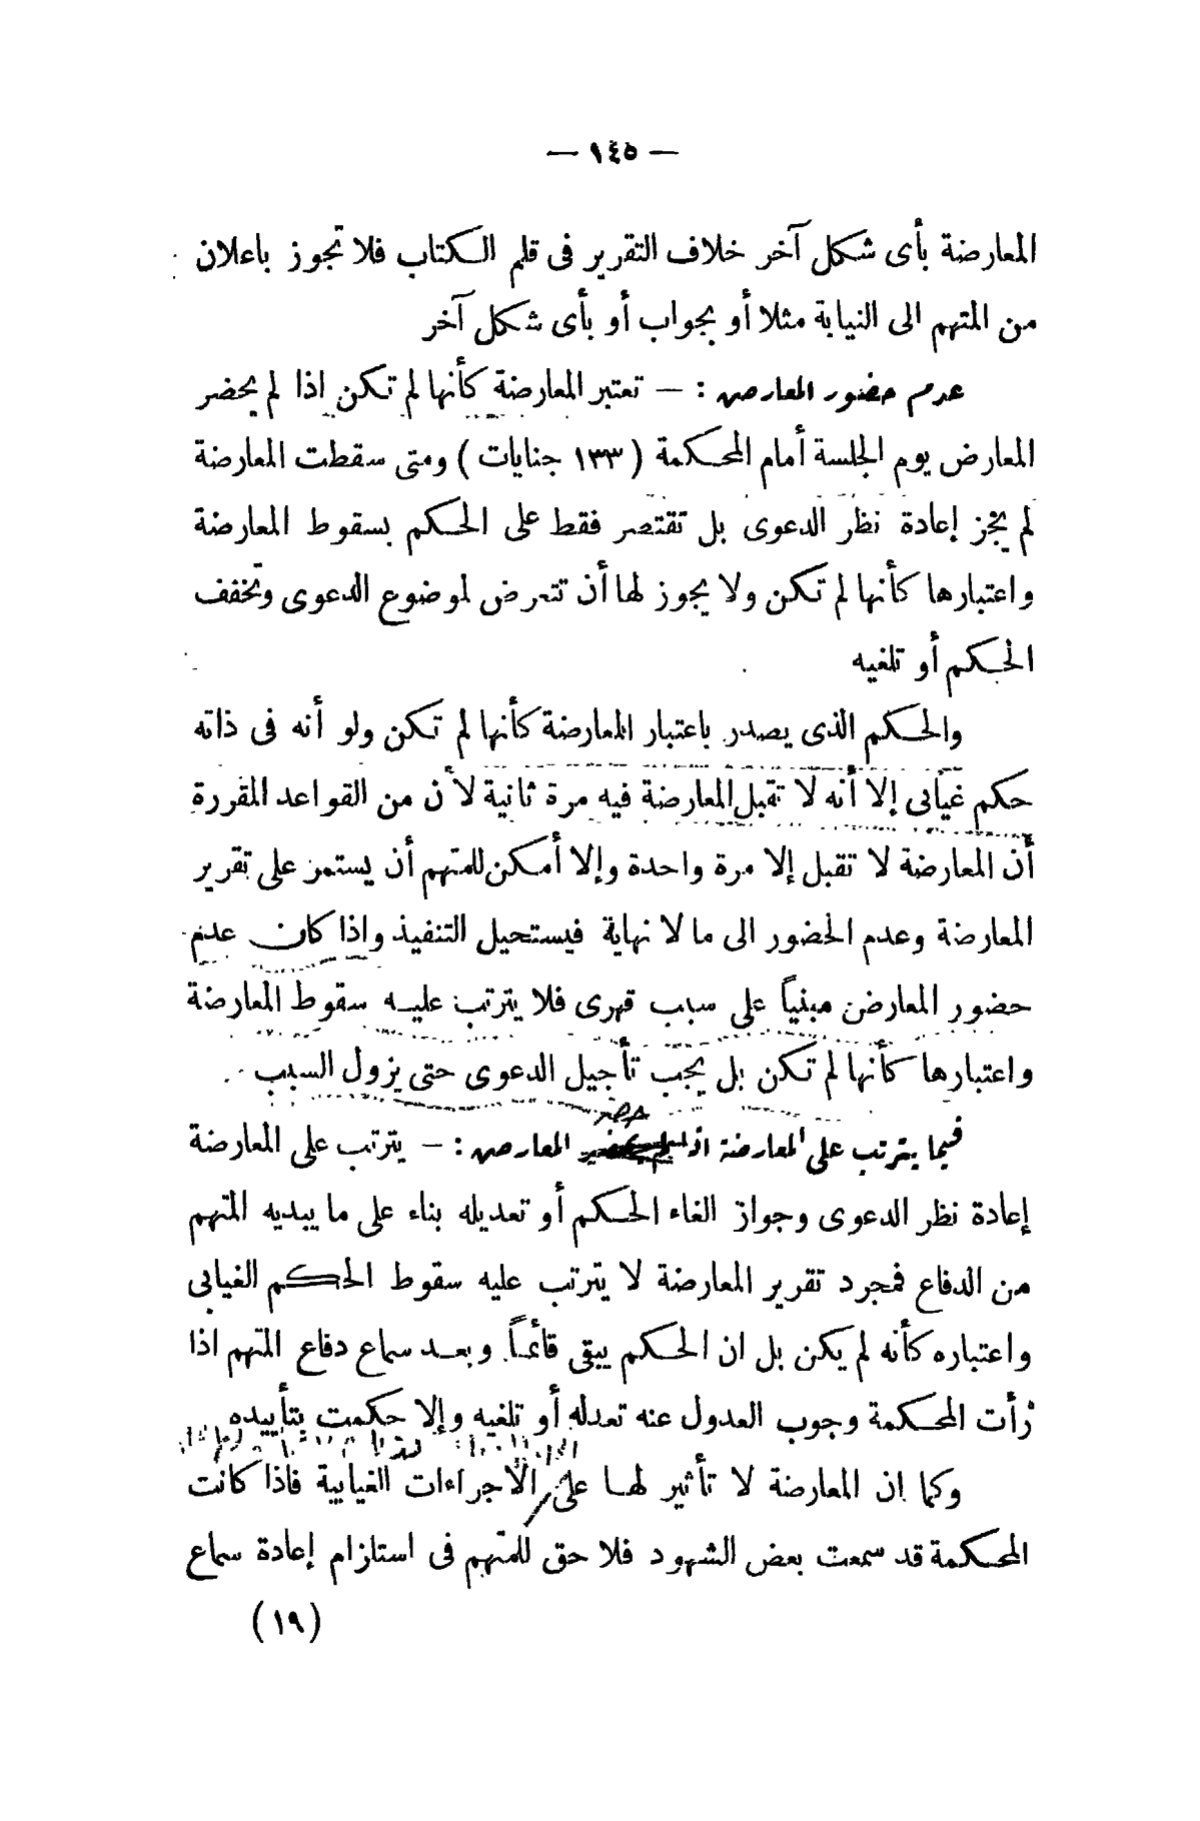 — ١٤٥ —
المعارضة بأى شكل آخر خلاف التقرير فى قلم الكتاب فلا تجوز باعلان
من المتهم الى النيابة مثلا أو بجواب أو بأى شكل آخر
عدم حضور المعارض : — تعتبر المعارضة كأنها لم تكن اذا لم يحضر
المعارض يوم الجلسة أمام المحكمة ( ١٣٣ جنايات ) ومتى سقطت المعارضة
لم يجز إعادة نظر الدعوى بل تقتصر فقط على الحكم بسقوط المعارضة
واعتبارها كأنها لم تكن ولا يجوز لها أن تتعرض لموضوع الدعوى وتخفف
الحكم أو تلغيه
والحكم الذى يصدر باعتبار المعارضة كأنها لم تكن ولو أنه فى ذاته
حكم غيابى إلا أنه لا تقبل المعارضة فيه مرة ثانية لأن من القواعد المقررة
أن المعارضة لا تقبل إلا مرة واحدة وإلا أمكن للمتهم أن يستمر على تقرير
المعارضة وعدم الحضور الى ما لا نهاية فيستحيل التنفيذ واذا كان عدم
حضور المعارض مبنياً على سبب قهرى فلا يترتب عليه سقوط المعارضة
واعتبارها كأنها لم تكن بل يجب تأجيل الدعوى حتى يزول السبب
حضر
فيما يترتب على المعارضة اذا المعارض : — يترتب على المعارضة
إعادة نظر الدعوى وجواز الغاء الحكم أو تعديله بناء على ما يبديه المتهم
من الدفاع فمجرد تقرير المعارضة لا يترتب عليه سقوط الحكم الغيابى
واعتباره كأنه لم يكن بل ان الحكم يبقى قائماً. وبعد سماع دفاع المتهم اذا
رأت المحكمة وجوب العدول عنه تعدله أو تلغيه وإلا حكمت بتأييده
وكما ان المعارضة لا تأثير لها على الاجراءات الغيابية فاذا كانت
المحكمة قد سمعت بعض الشهود فلا حق للمتهم فى استلزام إعادة سماع
(١٩)